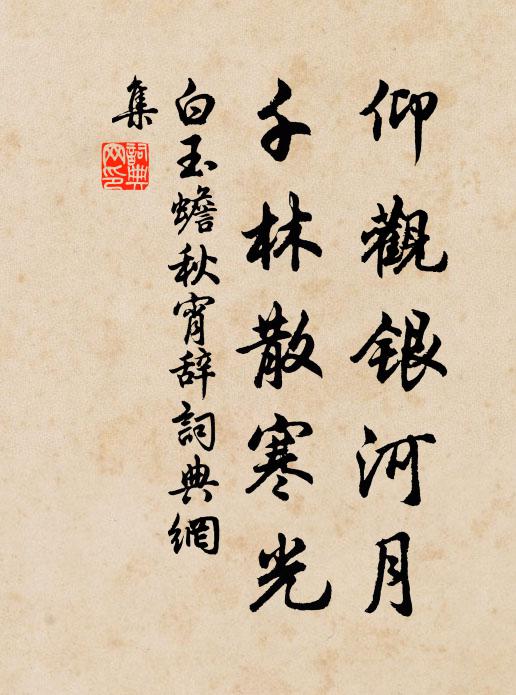 仰觀銀河月
千林散寒光
白玉蟾秋宵辭詞典網
集
詞典
网印